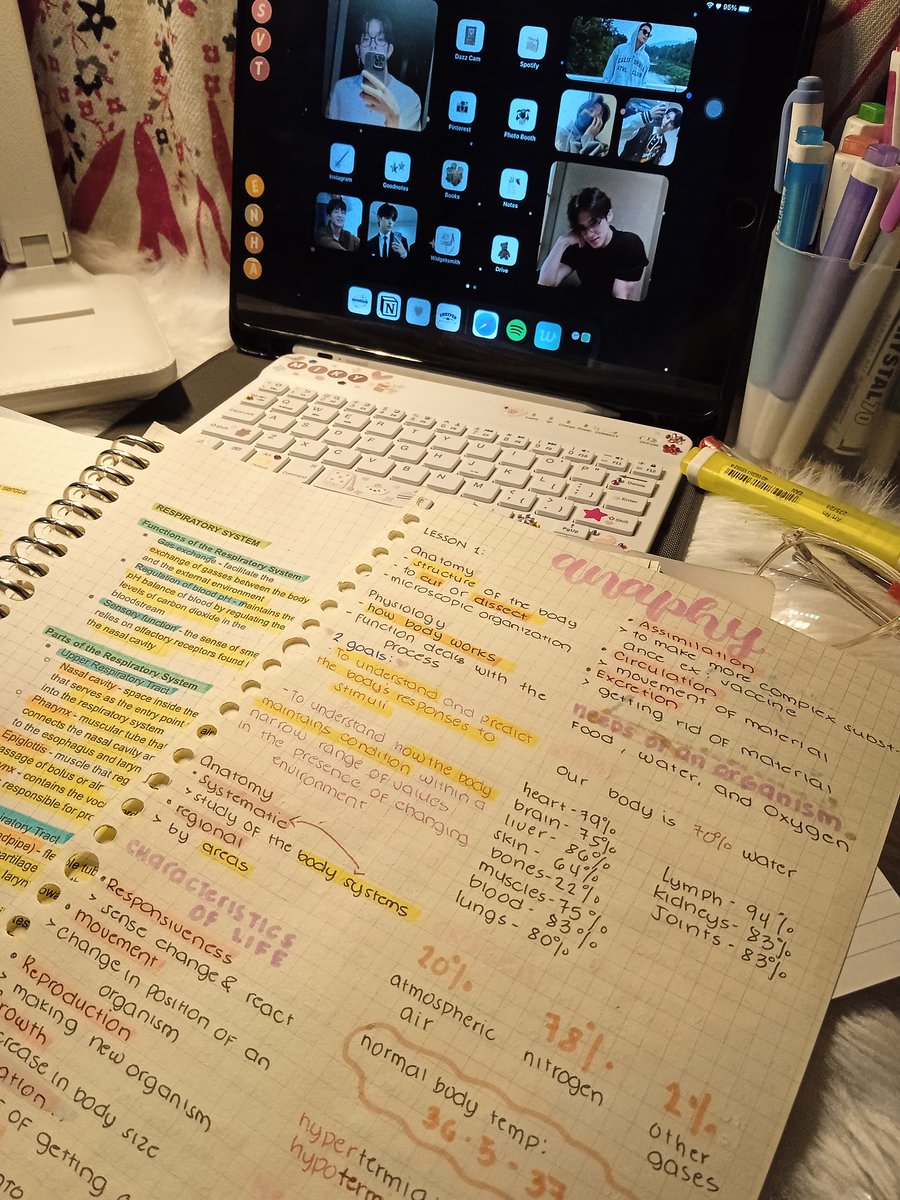 S
V
T
95%
Dazz Cam
Spotify
CALIF
Pinterest
Photo Booth
E
N
H
A
Instagram
Goodnotes
Books
Notes
Widgetsmith
Drive
N
MIKY
Delete
Enter
Shift
PgUp
RESPIRATORY SYSTEM
Functions of the Respiratory System
Gas exchange - facilitate the
exchange of gasses between the body
and the external environment.
Regulation of blood pH - maintains the
pH balance of blood by regulating the
levels of carbon dioxide in the
bloodstream
Sensory function - the sense of sme
relies on olfactory receptors found i
the nasal cavity
Parts of the Respiratory System
Upper Respiratory Tract
Nasal cavity - space inside the
that serves as the entry point
into the respiratory system
Pharynx - muscular tube tha
connects the nasal cavity a
to the esophagus and laryn
Epiglottis - muscle that reg
assage of bolus or air
ynx - contains the voc
responsible for pro
piratory Tract
LESSON 1:
Anatomy
- structure of the body
- to cut or dissect
- microscopic organization
Physiology
- how body works
- function deals with the
process
2 goals:
- To understand and predict
the body's responses to
stimuli
- To understand how the body
maintains condition within a
narrow range of values
in the presence of changing
environment
Anatomy
• Systematic
> study of the body systems
• regional
> by areas
CHARACTERISTICS
OF LIFE
• Responsiveness
> sense change & react
• movement
> change in position of an
organism
• Reproduction
> making new organism
rowth
crease in body size
s of getting
anaphy
• Assimilation
> to make more complex subst-
ance ex: vaccine
• Circulation
> movement of material
• Excretion
> getting rid of material
NEEDS OF AN ORGANISM
Food, water, and Oxygen
Our body is 70% water
heart - 79%
brain - 75%
liver - 86%
skin - 64%
bones - 22%
muscles - 75%
blood - 83%
lungs - 80%
Lymph - 94%
Kidneys - 83%
Joints - 83%
20%
atmospheric
air
78%
nitrogen
2%
other
gases
normal body temp:
36.5 - 37
hypertermia
hypoterm